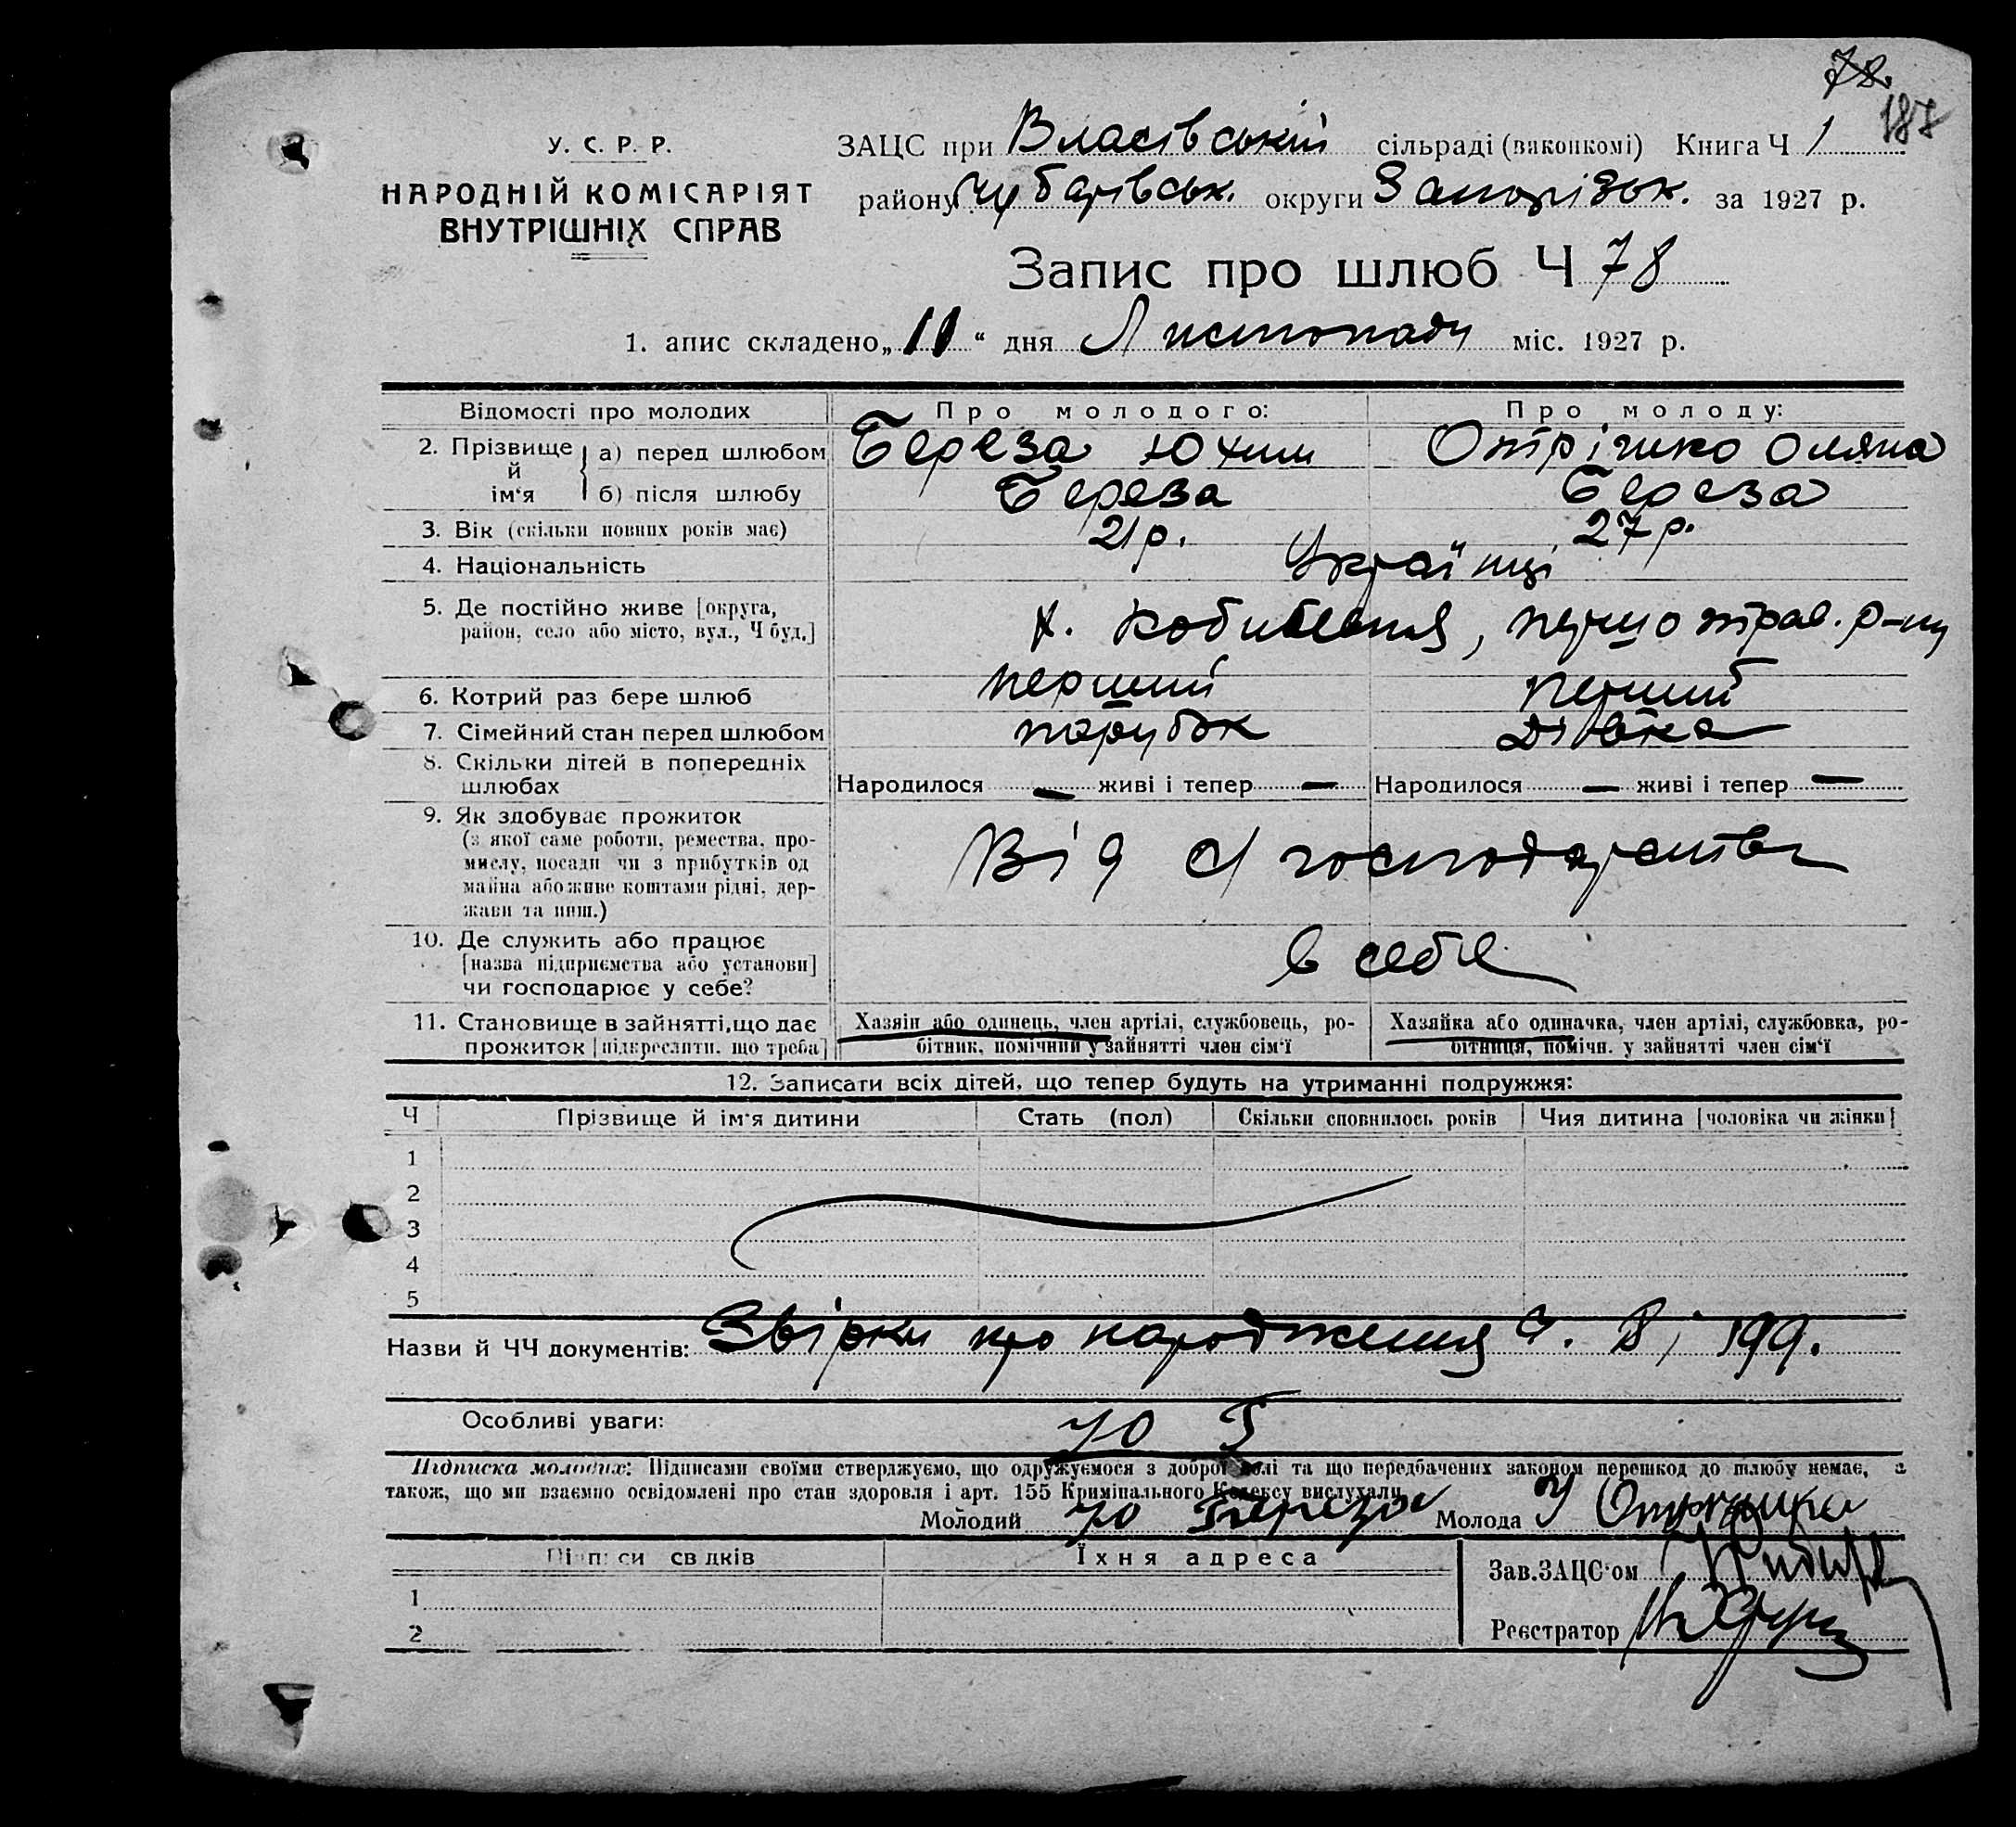 78.
187
У. С. Р. Р.
НАРОДНІЙ КОМІСАРІЯТ
ВНУТРІШНІХ СПРАВ
ЗАЦС при Власівській сільраді (виконкомі) Книга Ч 1
району Чубарівськ. округи Запорізьк. за 1927 р.
Запис про шлюб Ч 78
1. апис складено „11“ дня Листопаду міс. 1927 р.
Відомості про молодих Про молодого: Про молоду:
2. Прізвище й ім‘я а) перед шлюбом Береза Юхим Отрішко Оляна
б) після шлюбу Береза Береза
3. Вік (скільки повних років має) 21 р. 27 р.
4. Національність Українці
5. Де постійно живе [округа,
район, село або місто, вул., Ч буд.] х. Кобилевня, першотрав. р-ну
6. Котрий раз бере шлюб перший перший
7. Сімейний стан перед шлюбом парубок дівка
8. Скільки дітей в попередніх
шлюбах Народилося — живі і тепер — Народилося — живі і тепер —
9. Як здобуває прожиток
(з якої саме роботи, ремества, про-
мислу, посади чи з прибутків од
майна або живе коштами рідні, дер-
жави та инш.) Від с/господарства
10. Де служить або працює
[назва підприємства або установи]
чи господарює у себе? в себе
11. Становище в зайнятті, що дає
прожиток [підкреслити, що треба]
Хазяїн або одинець, член артілі, службовець, ро-
бітник, помічний у зайнятті член сім‘ї
Хазяйка або одиначка, член артілі, службовка, ро-
бітниця, помічн. у зайнятті член сім‘ї
12. Записати всіх дітей, що тепер будуть на утриманні подружжя:
Ч Прізвище й ім‘я дитини Стать (пол) Скільки сповнилось років Чия дитина [чоловіка чи жінки]
1
2
3
4
5
Назви й ЧЧ документів: Звірки про народження Ч. 199.
Особливі уваги: Ю Б
Підписка молодих: Підписами своїми стверджуємо, що одружуємося з доброї волі та що передбачених законом перешкод до шлюбу немає, а
також, що ми взаємно освідомлені про стан здоровля і арт. 155 Кримінального Кодексу вислухали.
Молодий Ю Береза Молода У
Підписи свідків Їхня адреса
1
2
Зав. ЗАЦС‘ом
Реєстратор